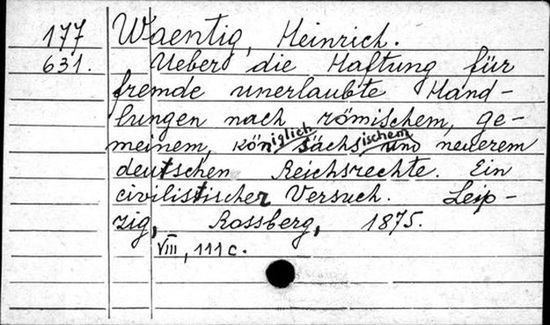 177 Waentig, Heinrich.
631. Ueber die Haftung für
fremde unerlaubte Hand-
lungen nach römischem, ge-
meinem, königlich sächsischem und neuerem
deutschen Reichsrechte. Ein
civilistischer Versuch. Leip-
zig, Rossberg, 1875.
VIII, 111 c.